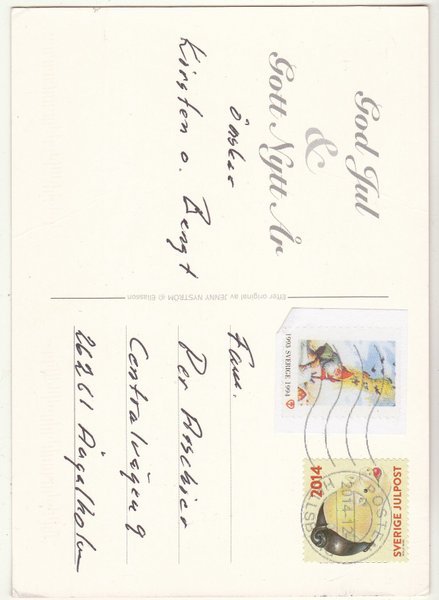 God Jul
&
Gott Nytt År
önskar
Kirsten o. Bengt
Efter original av JENNY NYSTRÖM © Eliasson
Fam.
Per Aschier
Centralvägen 9
26261 Ängelholm
1993 SVERIGE 1994
2014
SVERIGE JULPOST
2014-12